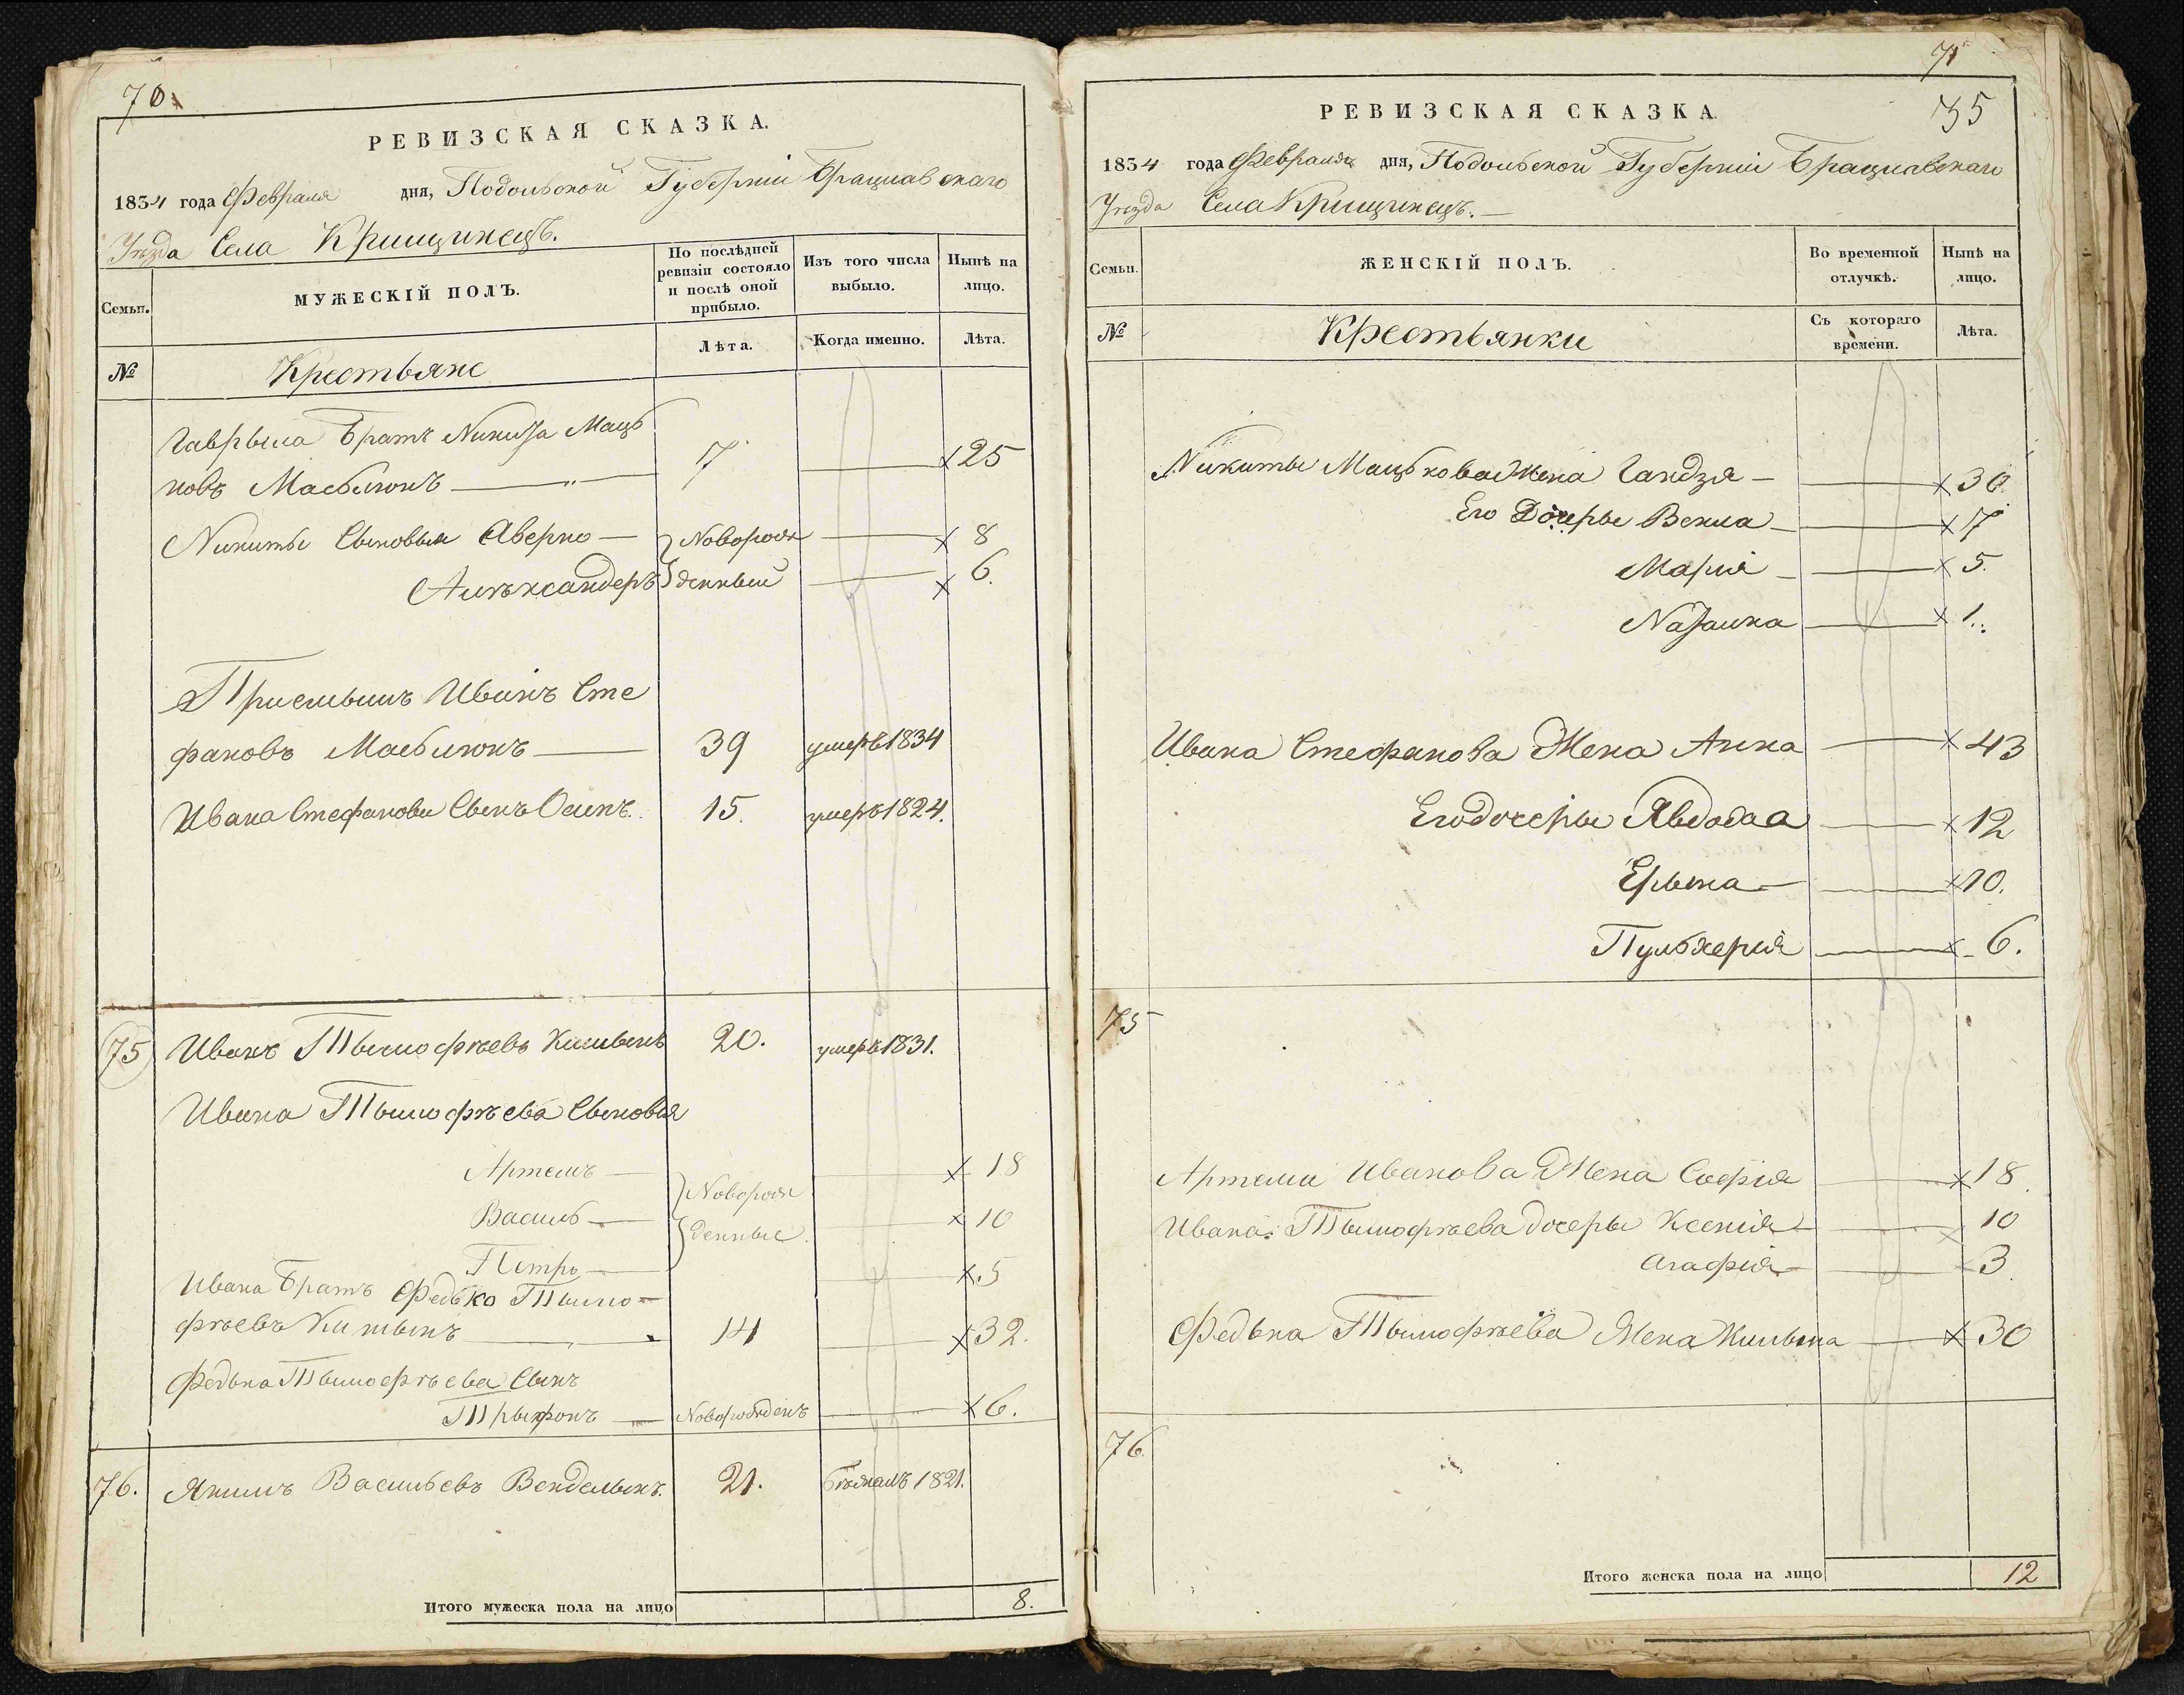 70.
РЕВИЗСКАЯ СКАЗКА.
1834 года Февраля дня, Подольской Губерніи Брацлавскаго
Уѣзда Села Крищинецъ.
Семьи.
МУЖЕСКІЙ ПОЛЪ.
По послѣдней ревизіи состояло и послѣ оной прибыло.
Изъ того числа выбыло.
Нынѣ на лицо.
№
Крестьяне
Лѣта.
Когда именно.
Лѣта.
Гаврыла Братъ Никита Маць
ковъ Маслюкъ 7 25
Никиты Сыновья Аверко Новорож 8
Алѣксандеръ денныи 6.
Иванъ Сте
фановъ 39 умеръ 1834
Ивана Стефанова Сынъ Осипъ. 15. умеръ 1824.
75 Иванъ Тымофѣевъ 20. умеръ 1831.
Ивана Тымофѣева Сыновья
Артемъ 18
Новорож
Василь 10
денные.
Петръ 5
Ивана Братъ Федько Тымо
фѣевъ 14 32.
Федька Тымофѣева Сынъ
Трыфонъ Новорожденъ 6.
76. Якимъ Васильевъ 21. бѣжалъ 1821.
Итого мужеска пола на лицо 8.
71
35
РЕВИЗСКАЯ СКАЗКА.
1834 года Февраля дня, Подольской Губерніи Брацлавскаго
Уѣзда Села Крищинецъ.
Семьи.
ЖЕНСКІЙ ПОЛЪ.
Во временной отлучкѣ.
Нынѣ на лицо.
№
Крестьянки
Съ котораго времени.
Лѣта.
Никиты Мацькова Жена Гандзя 30.
Его Дочеры Векла 7
Марія 5.
Наталка 1.
Ивана Стефанова Жена Анна 43
Его дочеры Явдода 12
Ерына 10.
Пульхерія 6.
75
Артема Иванова Жена Софія 18.
Ивана Тымофѣева дочеры Ксенія 10
Агафія 3.
Федька Тымофѣева Жена 30
76.
Итого женска пола на лицо 12